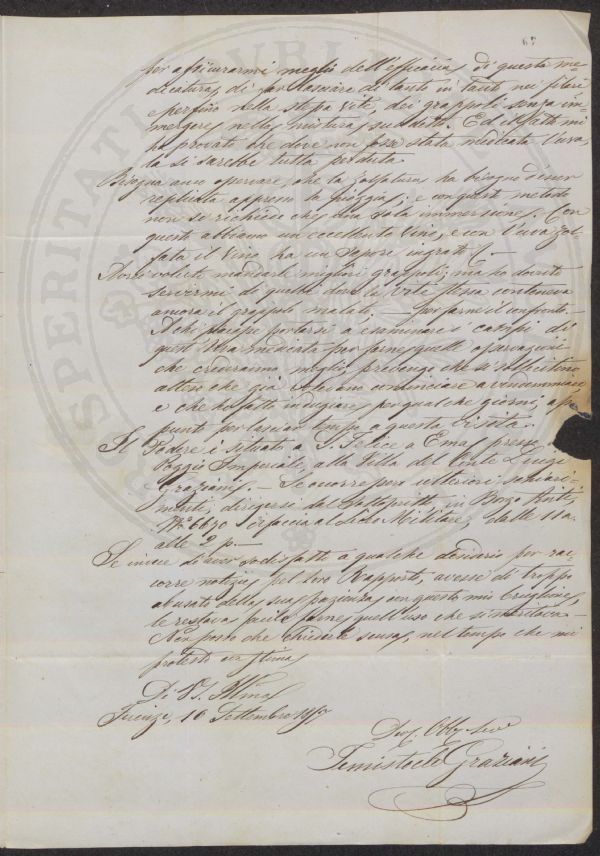 67
per assicurarmi meglio dell'efficacia di questa me-
dicatura, di far lasciare di tanto in tanto nei filari
e perfino nella stessa vite, dei grappoli senza im-
mergere nella mistura suddetta. Ed il fatto mi
ha provato che dove non fosse stata medicata l'uva,
la si sarebbe tutta perduta.
Bisogna anco osservare, che la zolfatura ha bisogno d'esser
replicata appresso la pioggia, e con questo metodo
non si richiede che una sola immersione. Con
questo abbiamo un eccellente vino, e con l'uva zol-
fata il vino ha un sapore ingrato.
voluto mandarle migliori grappoli, ma ho dovuto
servirmi di quelli dove la vite stessa conteneva
ancora il grappolo malato. — per farne il confronto. —
A chi piacesse portarsi a esaminare i campi di
quest' Uva medicata per farne quelle osservazioni
che crederanno meglio, prevengo che si solleciti
atteso che già volevano cominciare a vendemmiare,
e che ho fatto indugiare per qualche giorni, ap-
punto per lasciar tempo a questa visita.
Il Podere è situato a S. Felice a Ema, presso
Poggio Imperiale, alla Villa del Conte Luigi
Graziani. — Se occorre però ulteriori schiari-
menti, dirigersi dal sottoscritto in Borgo
No. 6690 in faccia al Liceo Militare, dalle 11 a.
alle 2 p. —
Se invece di aver sodisfatto a qualche desiderio per rac-
corre notizie pel loro Rapporto, avessi di troppo
abusato della sua pazienza con questo mio
le restava farne quell'uso che si meritava —
Non posto che chiederle scusa, nel tempo che mi
protesto con stima
Di V.S. Illma
Firenze, 16 Settembre
Dev. Obb. Serv
Temistocle Graziani
PROSPERITATI PUBLICAE